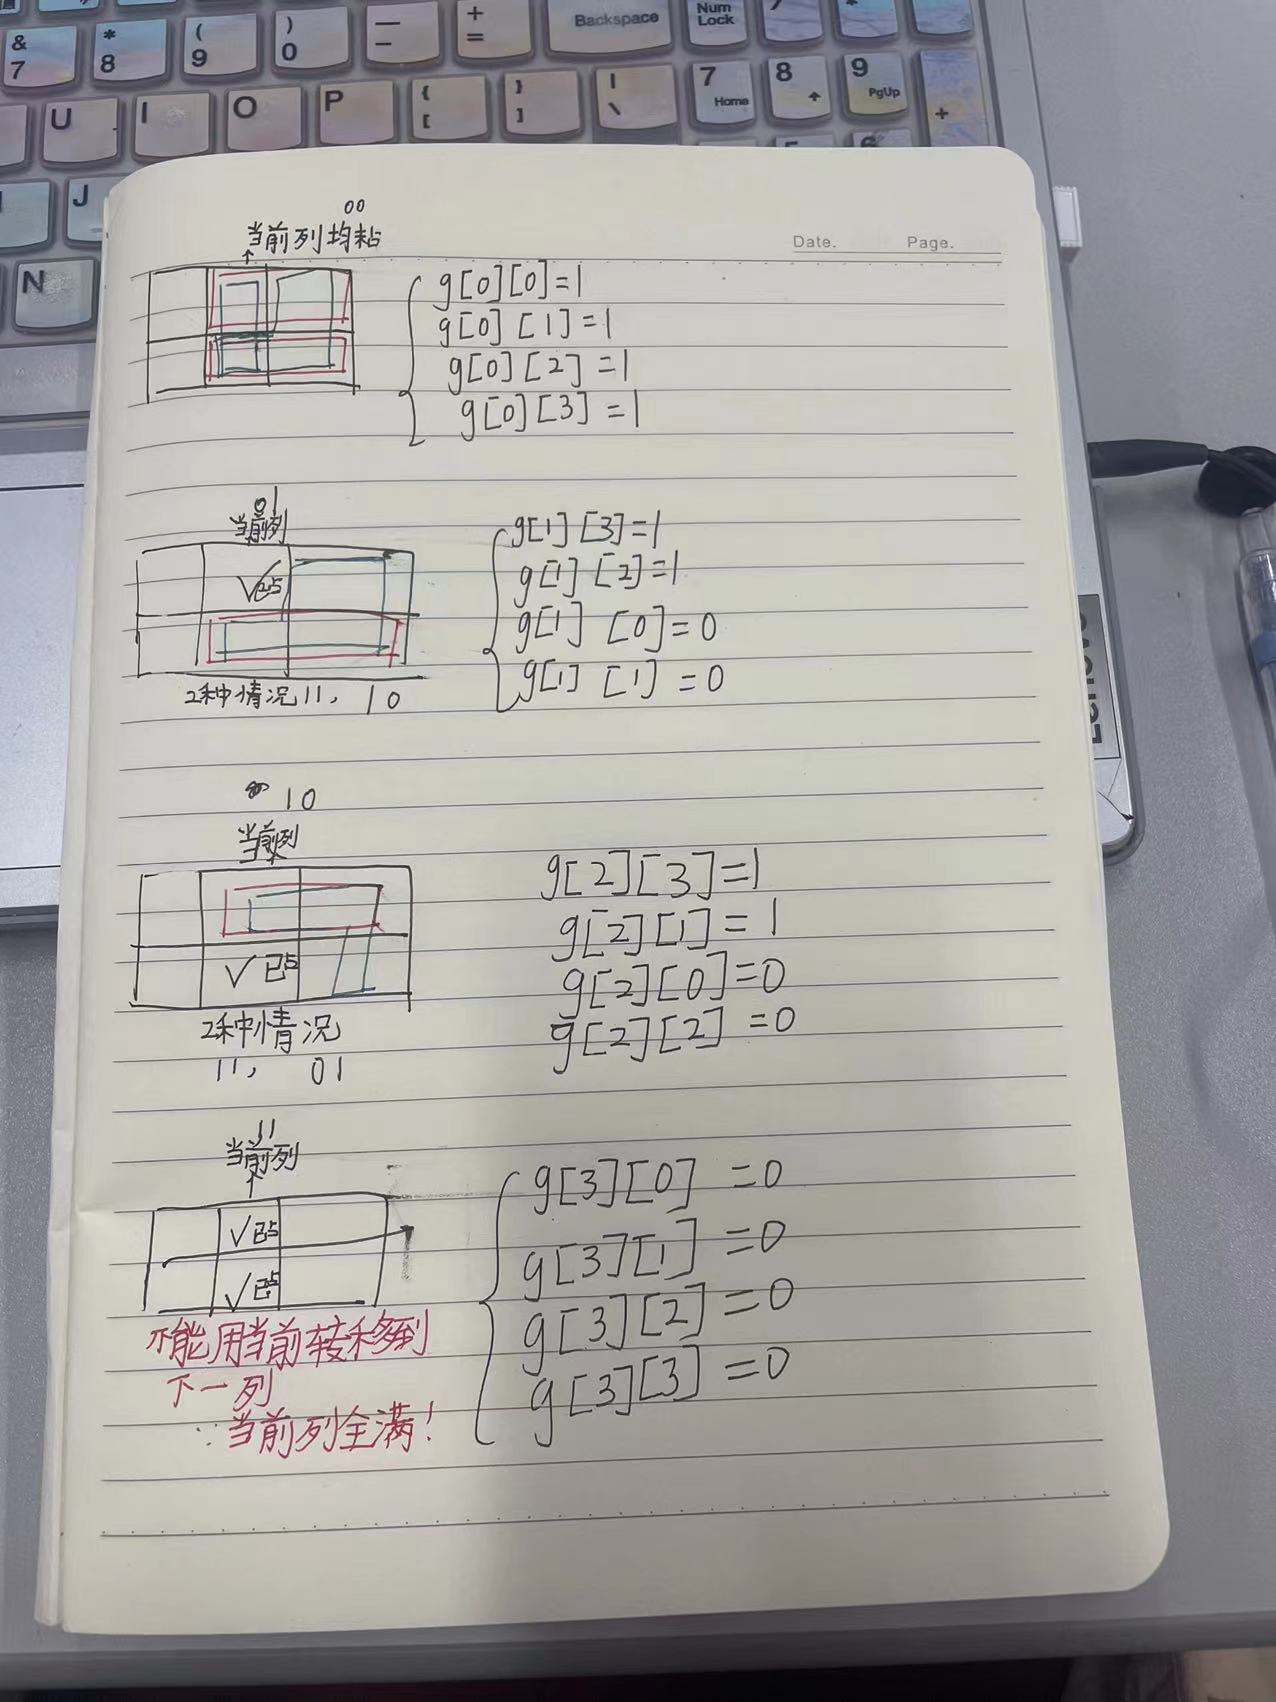 Backspace
Num
Lock
&
7
*
8
(
9
)
0
—
–
+
=
U
I
O
P
{
[
}
]
|
\
7
Home
8
9
PgUp
+
J
N
Date. Page.
00
当前列均粘
g[0][0]=1
g[0][1]=1
g[0][2]=1
g[0][3]=1
01
当前列
√已占
2种情况11, 10
g[1][3]=1
g[1][2]=1
g[1][0]=0
g[1][1]=0
10
当前列
√已占
2种情况
11, 01
g[2][3]=1
g[2][1]=1
g[2][0]=0
g[2][2]=0
11
当前列
√已占
√已占
不能用当前转移到
下一列
∵当前列全满!
g[3][0]=0
g[3][1]=0
g[3][2]=0
g[3][3]=0
Lenovo